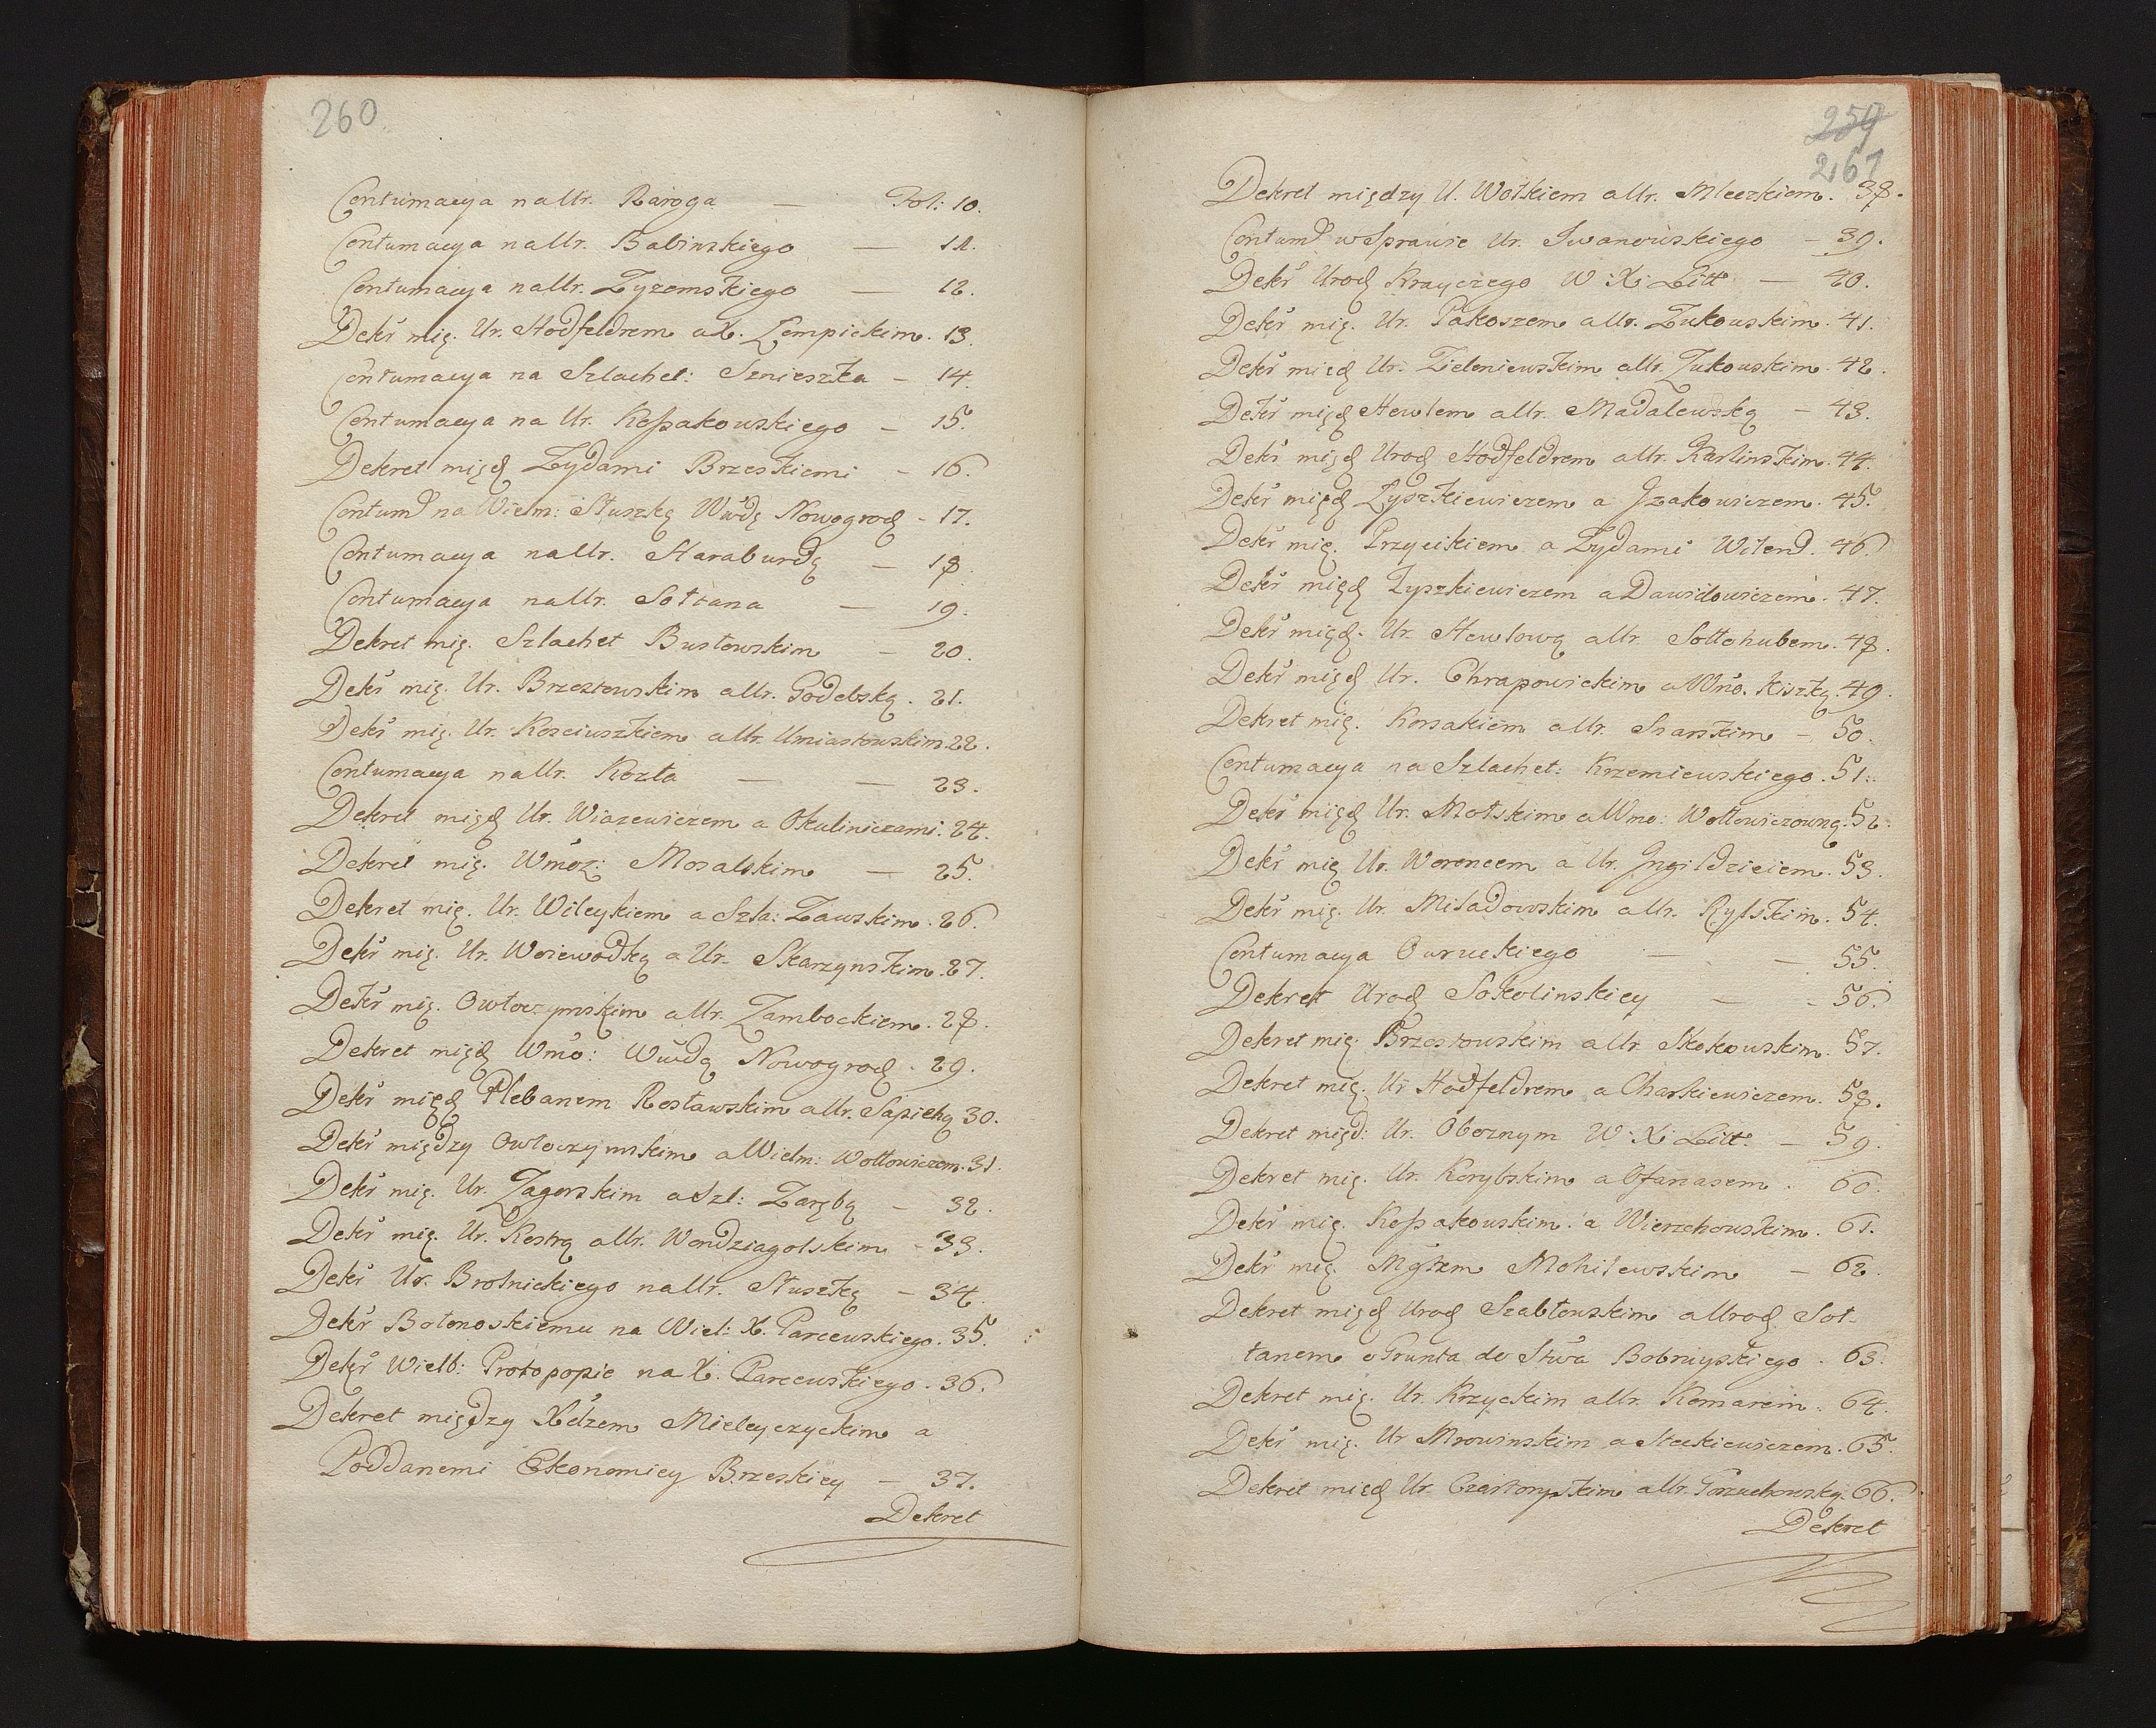 260
Contumacya na Ur. Raroga — Fol: 10.
Contumacya na Ur. Babinskiego — 11.
Contumacya na Ur. Zyzemskiego — 12.
Dekr mię. Ur. Hodfeldrem a X. Łempickim. 13.
Contumacya na Szlachet: Sznieszka — 14.
Contumacya na Ur. Kossakowskiego — 15.
Dekret międ Zydami Brzeskiemi — 16.
Contum na Wielm: Słuszkę Wwdę Nowogrod — 17.
Contumacya na Ur. Haraburdę — 18.
Contumacya na Ur. Sołtana — 19.
Dekret mię. Szlachet Bustowskim — 20.
Dekr mię. Ur. Brzezowskim a Ur. Godebską. 21.
Dekr mię. Ur. Kosciuszkiem a Ur. Umiastowskim. 22.
Contumacya na Ur. Kozła — — 23.
Dekret międ Ur. Wiazewiczem a Okuliniczami. 24.
Dekret mię. Wmoz: Mosalskim — 25.
Dekret mię. Ur. Wileykiem a Szla: Zawskim. 26.
Dekr mię. Ur. Woiewodką a Ur. Skarzynskim. 27.
Dekr mię. Owłoczymskim a Ur. Zambockiem. 28.
Dekret międ Wmo: Wwdą Nowogrod. 29.
Dekr międ Plebanem Rosławskim a Ur. Sapiehą 30.
Dekr między Owłoczymskim a Wielm: Wołłowiczem. 31.
Dekr mię. Ur. Zagorskim a Szl: Zarębą — 32.
Dekr mię. Ur. Kostrą a Ur. Wondziagolskim — 33.
Dekr Ur. Brolnickiego na Ur. Słuszkę — 34.
Dekr Bołonoskiemu na Wiel: X. Parcewskiego. 35.
Dekr Wielb: Protopopie na X. Parcewskiego. 36.
Dekret między Xdzem Mieleyczyckim a
Poddanemi Ekonomiey Brzeskiey — 37.
Dekret
259
261
Dekret między U. Wołkiem a Ur. Mleczkiem. 38.
Contum w Sprawie Ur. Iwanowskiego — 39.
Dekr Urod Krayczego W. X. Litt — 40.
Dekr mię. Ur. Pakoszem a Ur. Zukowskim. 41.
Dekr międ Ur. Zieleniewskim a Ur. Zukowskim. 42.
Dekr międ Hewlem a Ur. Madalewską — 43.
Dekr międ Urod Hodfeldrem a Ur. Karlinskim. 44.
Dekr międ Łyszkiewiczem a Jzakowiczem. 45.
Dekr mię. Przycikiem a Zydami Wilend. 46.
Dekr międ Tyszkiewiczem a Dawidowiczem. 47.
Dekr międ. Ur. Hewlową a Ur. Sołłohubem. 48.
Dekr międ Ur. Chrapowickim a Wmo. Kiszką. 49.
Dekret mię. Korsakiem a Ur. Szarskim — 50.
Contumacya na Szlachet: Krzemiewskiego. 51.
Dekr międ Ur. Molskim a Wmo: Wołłowiczowną. 52.
Dekr mię Ur. Woroncem a Ur. Jngildzieiem. 53.
Dekr mię. Ur. Miładowskim a Ur. Rylskim. 54.
Contumacya Owruckiego — — 55.
Dekret Urod Sokolinskiey — — 56.
Dekret mię. Brzostowskim a Ur. Skokowskim. 57.
Dekret mię. Ur Hodfeldrem a Charkiewiczem. 58.
Dekret międ: Ur. Oboznym W. X. Litt: — 59.
Dekret mię. Ur. Korybskim a Ofanasem. 60.
Dekr mię. Kossakowskim a Wierzchowskim. 61.
Dekr mię. Mgrem Mohilewskim — 62.
Dekret międ Urod Szabłowskim a Urod Soł-
tanem o Grunta do Stwa Bobruyskiego. 63.
Dekret mię. Ur. Krzyckim a Ur. Komarem. 64.
Dekr mię. Ur Mrowinskim a Steckiewiczem. 65.
Dekret międ Ur. Czartoryskim a Ur. Gorzuchowską. 66.
Dekret